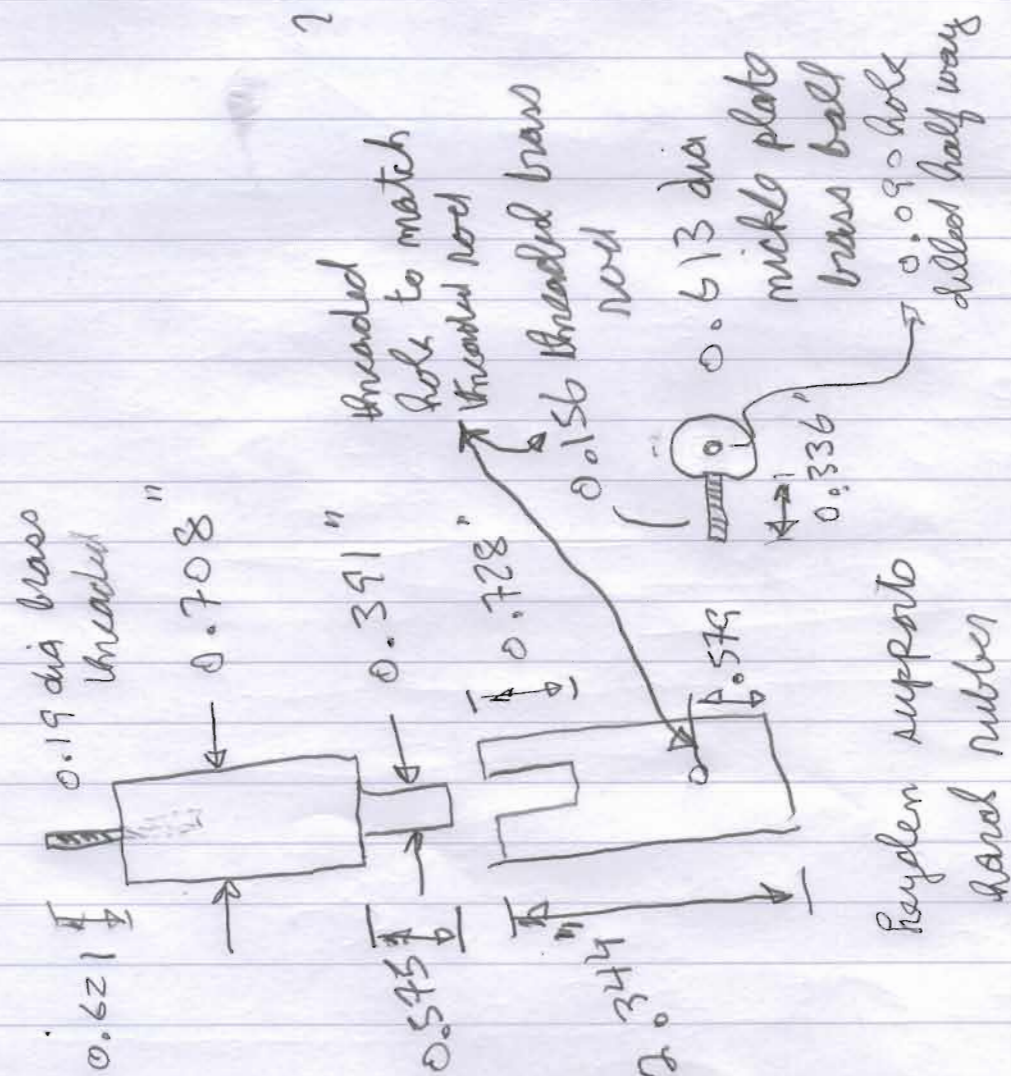 2
0.19 dia brass
threaded
0.621
0.708"
0.391"
0.575"
0.728"
2.344"
.579
threaded
hole to match
threaded rod
0.156 threaded brass
rod
0.613 dia
nickle plate
brass ball
0.336"
0.090 hole
drilled half way
supports
hard rubber